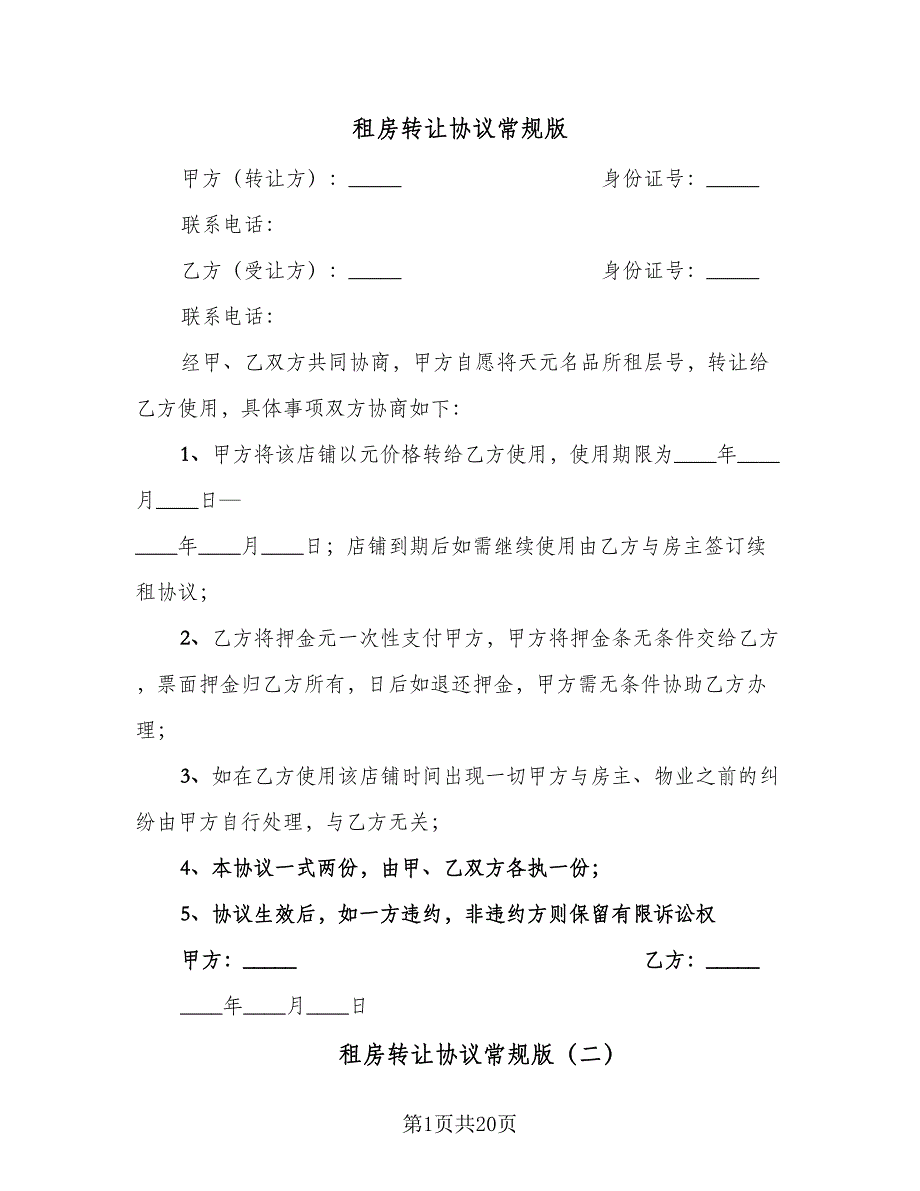 租房转让协议常规版
甲方（转让方）：_____ 身份证号：_____
联系电话：
乙方（受让方）：_____ 身份证号：_____
联系电话：
经甲、乙双方共同协商，甲方自愿将天元名品所租层号，转让给
乙方使用，具体事项双方协商如下：
1、甲方将该店铺以元价格转给乙方使用，使用期限为____年____
月____日—
____年____月____日；店铺到期后如需继续使用由乙方与房主签订续
租协议；
2、乙方将押金元一次性支付甲方，甲方将押金条无条件交给乙方
，票面押金归乙方所有，日后如退还押金，甲方需无条件协助乙方办
理；
3、如在乙方使用该店铺时间出现一切甲方与房主、物业之前的纠
纷由甲方自行处理，与乙方无关；
4、本协议一式两份，由甲、乙双方各执一份；
5、协议生效后，如一方违约，非违约方则保留有限诉讼权
甲方：_____ 乙方：_____
____年____月____日
租房转让协议常规版（二）
第1页共20页